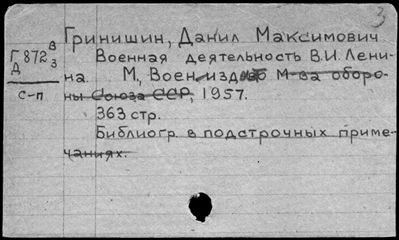 3
Гринишин, Данил Максимович
Г 872 В
Д 3
Военная деятельность В.И. Лени-
на. М., Воениздат М-ва оборо-
с-п
ны Союза ССР, 1957.
363 стр.
Библиогр. в подстрочных приме-
чаниях.